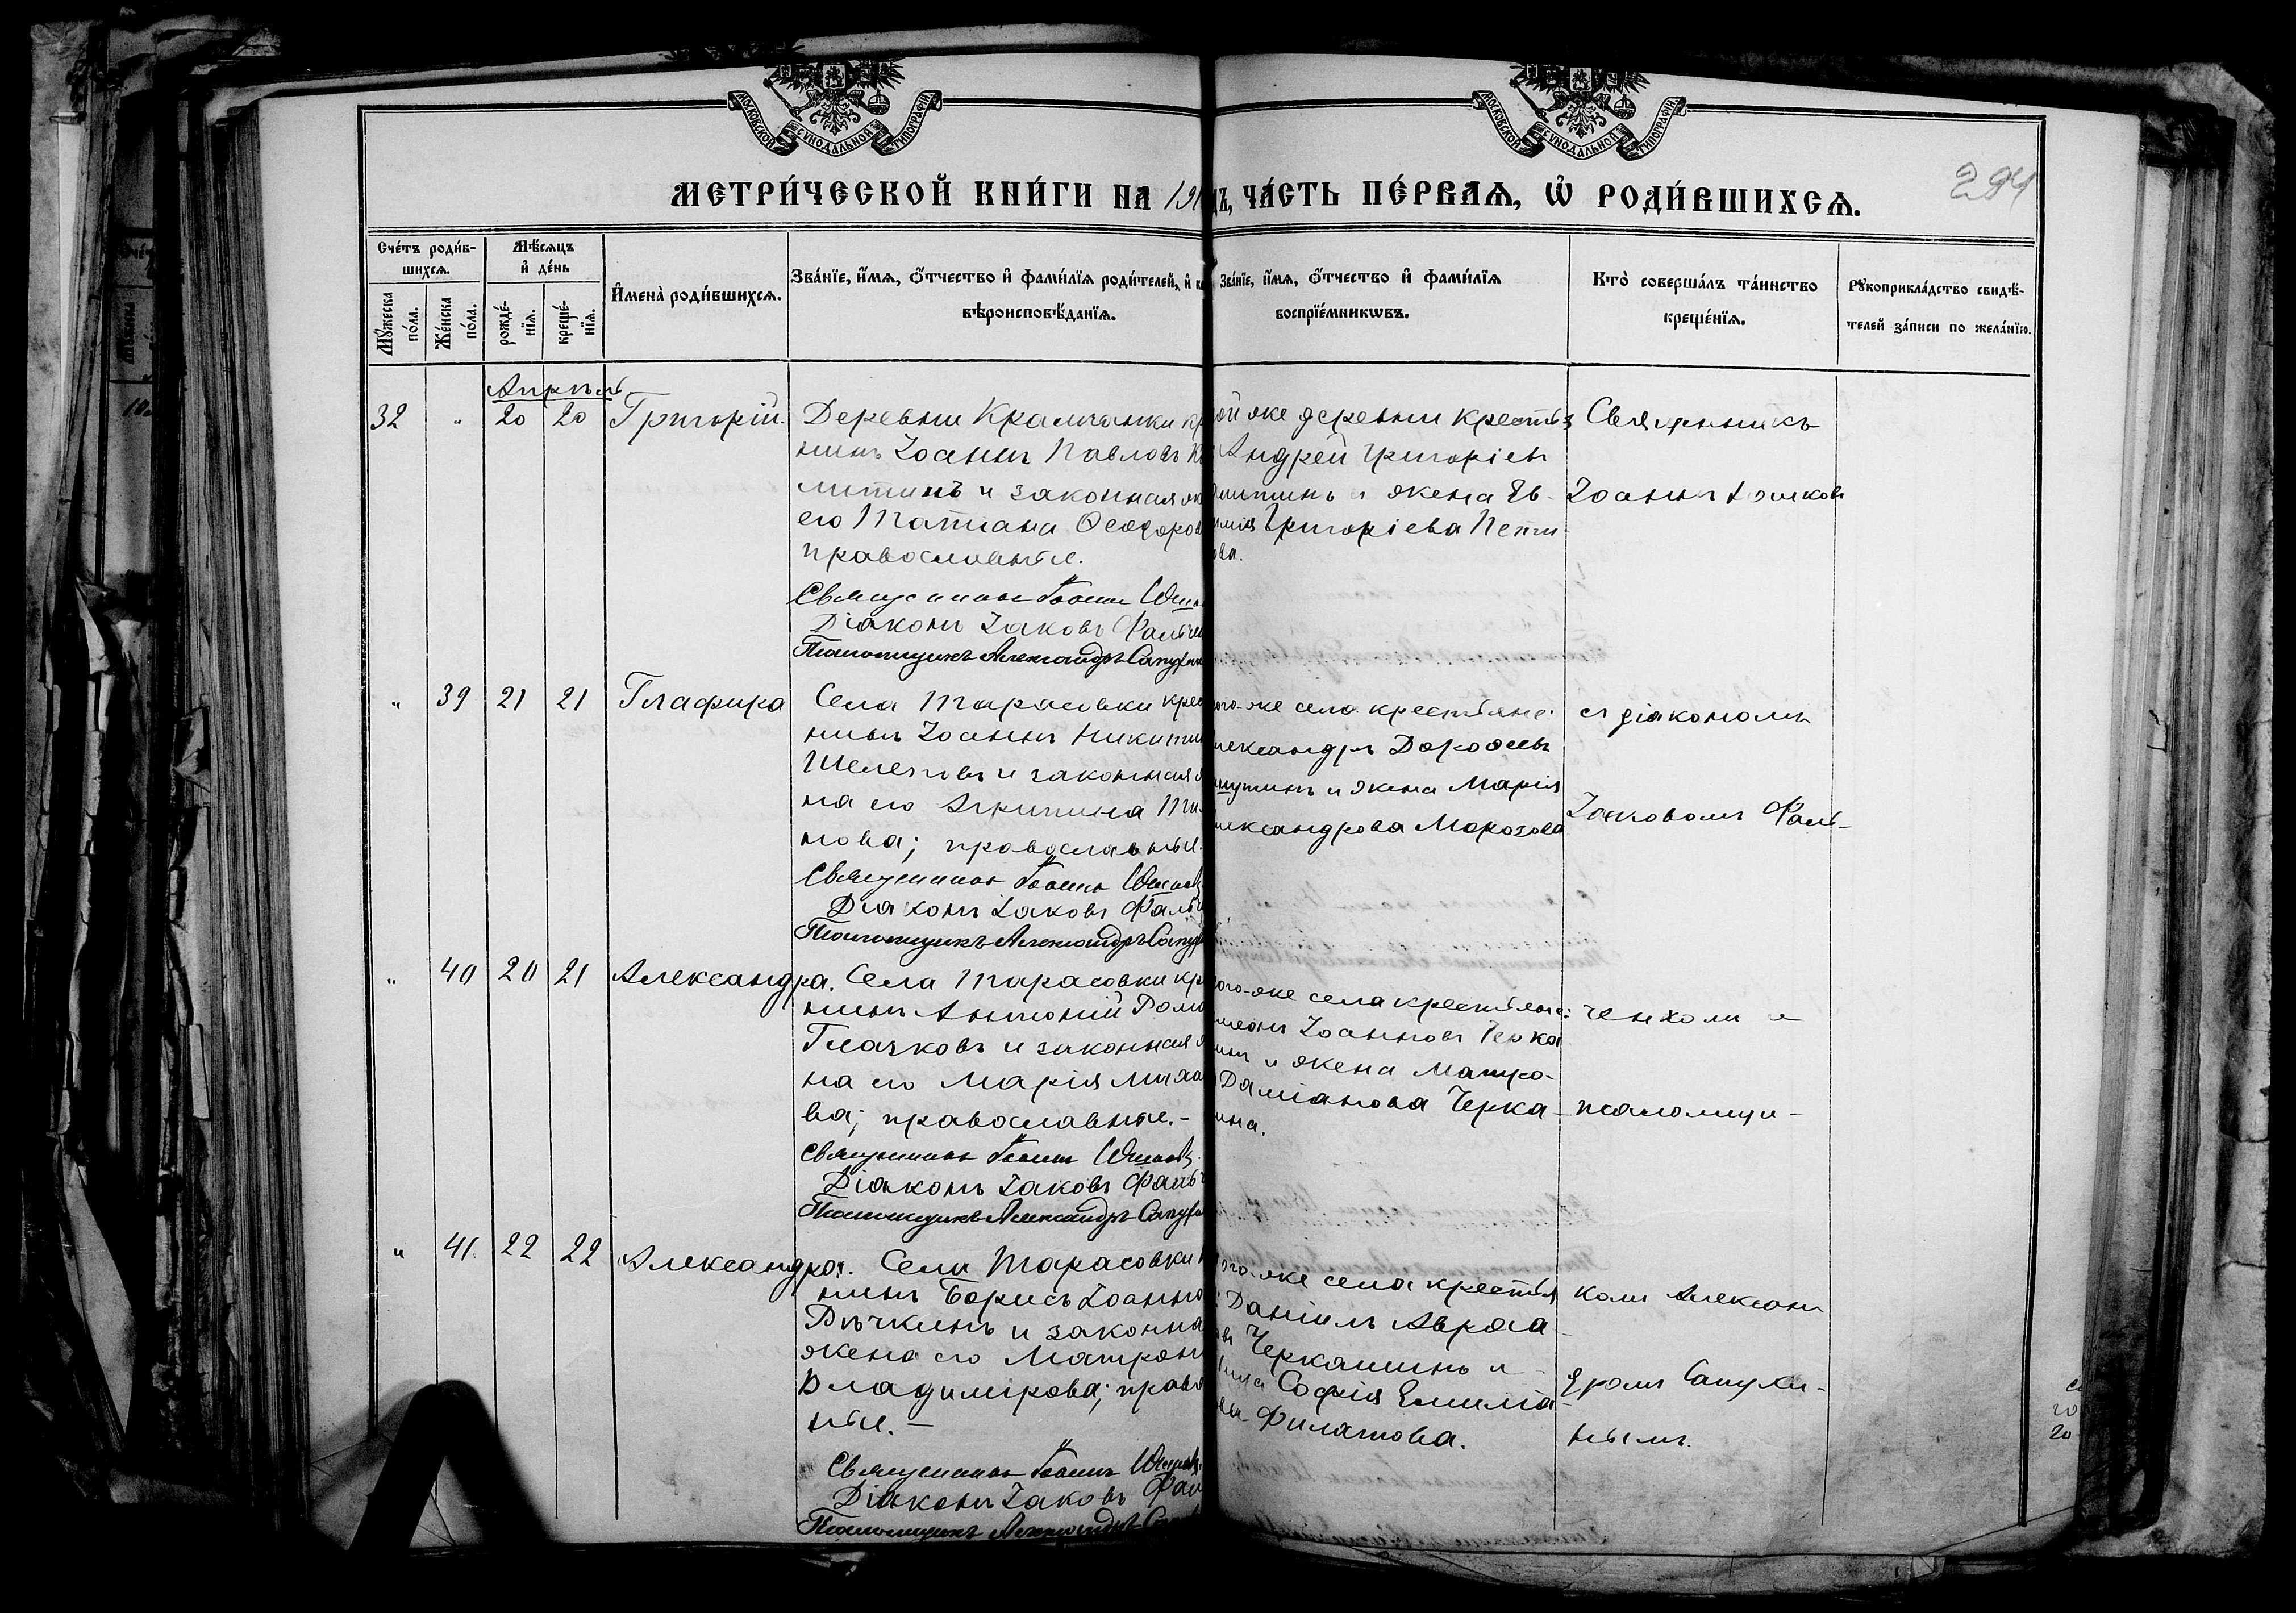 МОСКОВСКОЙ СѴНОДАЛЬНОЙ ТИПОГРАФІИ
МОСКОВСКОЙ СѴНОДАЛЬНОЙ ТИПОГРАФІИ
МЕТРИ́ЧЕСКОЙ КНИ́ГИ НА 191
ДЪ, ЧА́СТЬ ПЕ́РВАѦ, Ѡ҆ РОДИ́ВШИХСѦ.
294
Сче́тъ роди́в-
шихсѧ.
Мꙋ́жеска по́ла.
Же́нска по́ла.
Мѣ́сѧцъ
и҆ де́нь
рожде́-
нїѧ.
креще́-
нїѧ.
И҆мена̀ роди́вшихсѧ.
Зва́нїе, и҆́мѧ, ѻ҆́тчество и҆ фами́лїѧ роди́телей, и҆
вѣроисповѣ́данїѧ.
Зва́нїе, и҆́мѧ, ѻ҆́тчество и҆ фами́лїѧ
воспрїе́мникѡвъ.
Кто̀ соверша́лъ та́инство
креще́нїѧ.
Рꙋкоприкла́дство свидѣ́-
телей за́писи по жела́нїю.
Апрѣль
32 " 20 20 Григорій.
Деревни Крамчанки кр
нинъ Іоаннъ Павловъ
митинъ и законная ж
его Татіана Ѳеодоров
православные.
Священникъ Іоаннъ
Діаконъ Іаковъ Фальче
Псаломщикъ Александръ Сапухин
ой же деревни крестья
Андрей Григоріевъ
митинъ и жена Ев-
имія Григоріева Пети-
ова.
Священникъ
Іоаннъ
" 39 21 21 Глафира
Села Тарасовки крес
нинъ Іоаннъ Никитин
Шелеповъ и законная ж
на его Агрипина Ти
нова; православные.
Священникъ Іоаннъ
Діаконъ Іаковъ Фальч
Псаломщикъ Александръ Сапух
ого-же села крестьяне:
лександръ Дороѳеевъ
шутинъ и жена Марія
лександрова Морозова
съ діакономъ
Іаковомъ Фаль-
" 40 20 21 Александра.
Села Тарасовки кр
нинъ Антоній Рома
Глачковъ и законная ж
на его Марія Михаи
ва; православные.-
Священникъ Іоаннъ
Діаконъ Іаковъ Фальч
Псаломщикъ Александръ Сапухи
ого-же села крестьяне:
Іоанновъ Черка
инъ и жена Матро-
Даміанова Черка-
ина.
ченком и
псаломщи-
" 41. 22 22 Александра.
Села Тарасовки
нинъ Борисъ Іоанно
Рѣчкинъ и законна
жена его Матрон
Владимірова; право
ные.-
Священникъ Іоаннъ
Діаконъ Іаковъ Фал
Псаломщикъ Александръ
ого-же села крестья
Даніилъ Авраа-
овъ Черкашинъ и
Софія Емилiа
ва Филатова.
комъ Алексан
дромъ Сапухи-
нымъ.
20